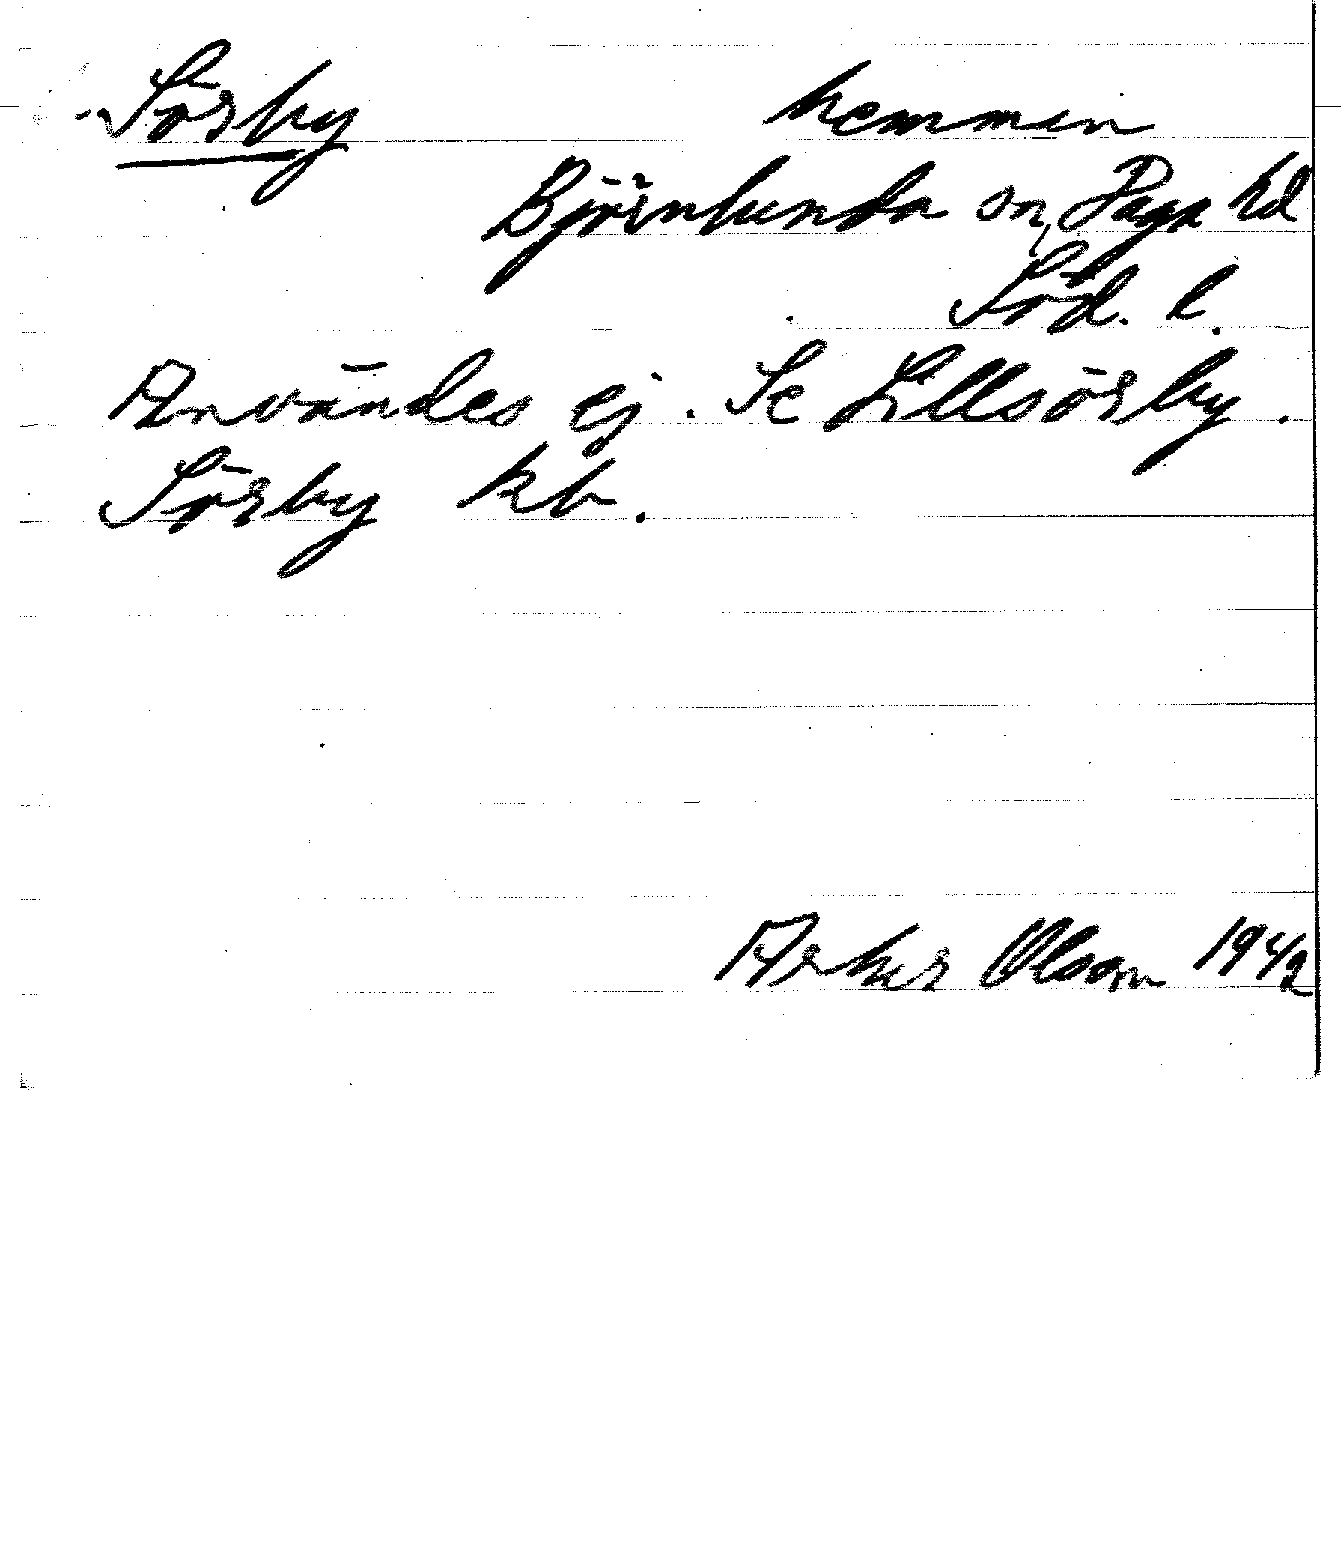 Sörby hemman
Björnlunda sn, Daga hd
Söd. l.
Användes ej. Se Lillsörby.
Sörby kb.
Olsson 1942